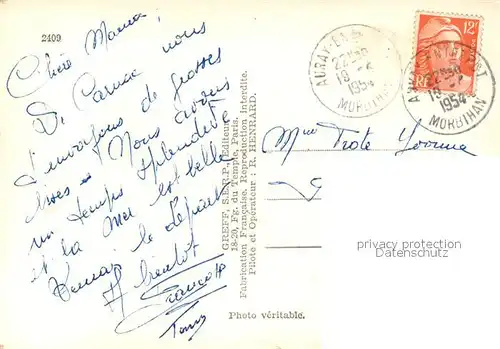 2409
Chère Mama,
De Carnac nous
t'envoyons de grosses
bises. Nous avons
un temps splendide
et la mer est belle
Demain le départ
A bientôt
Franço
Tony
GREFF, S.E.R.P., Editeur
18-20, Fg. du Temple, Paris.
Fabrication Française. Reproduction Interdite.
Pilote et Opérateur : R. HENRARD.
Photo véritable.
AURAY-EN-
22H30
18 -
1954
MORBIHAN
12F
22H30
18 -
1954
MORBIHAN
Mme Yvonne
privacy protection
Datenschutz